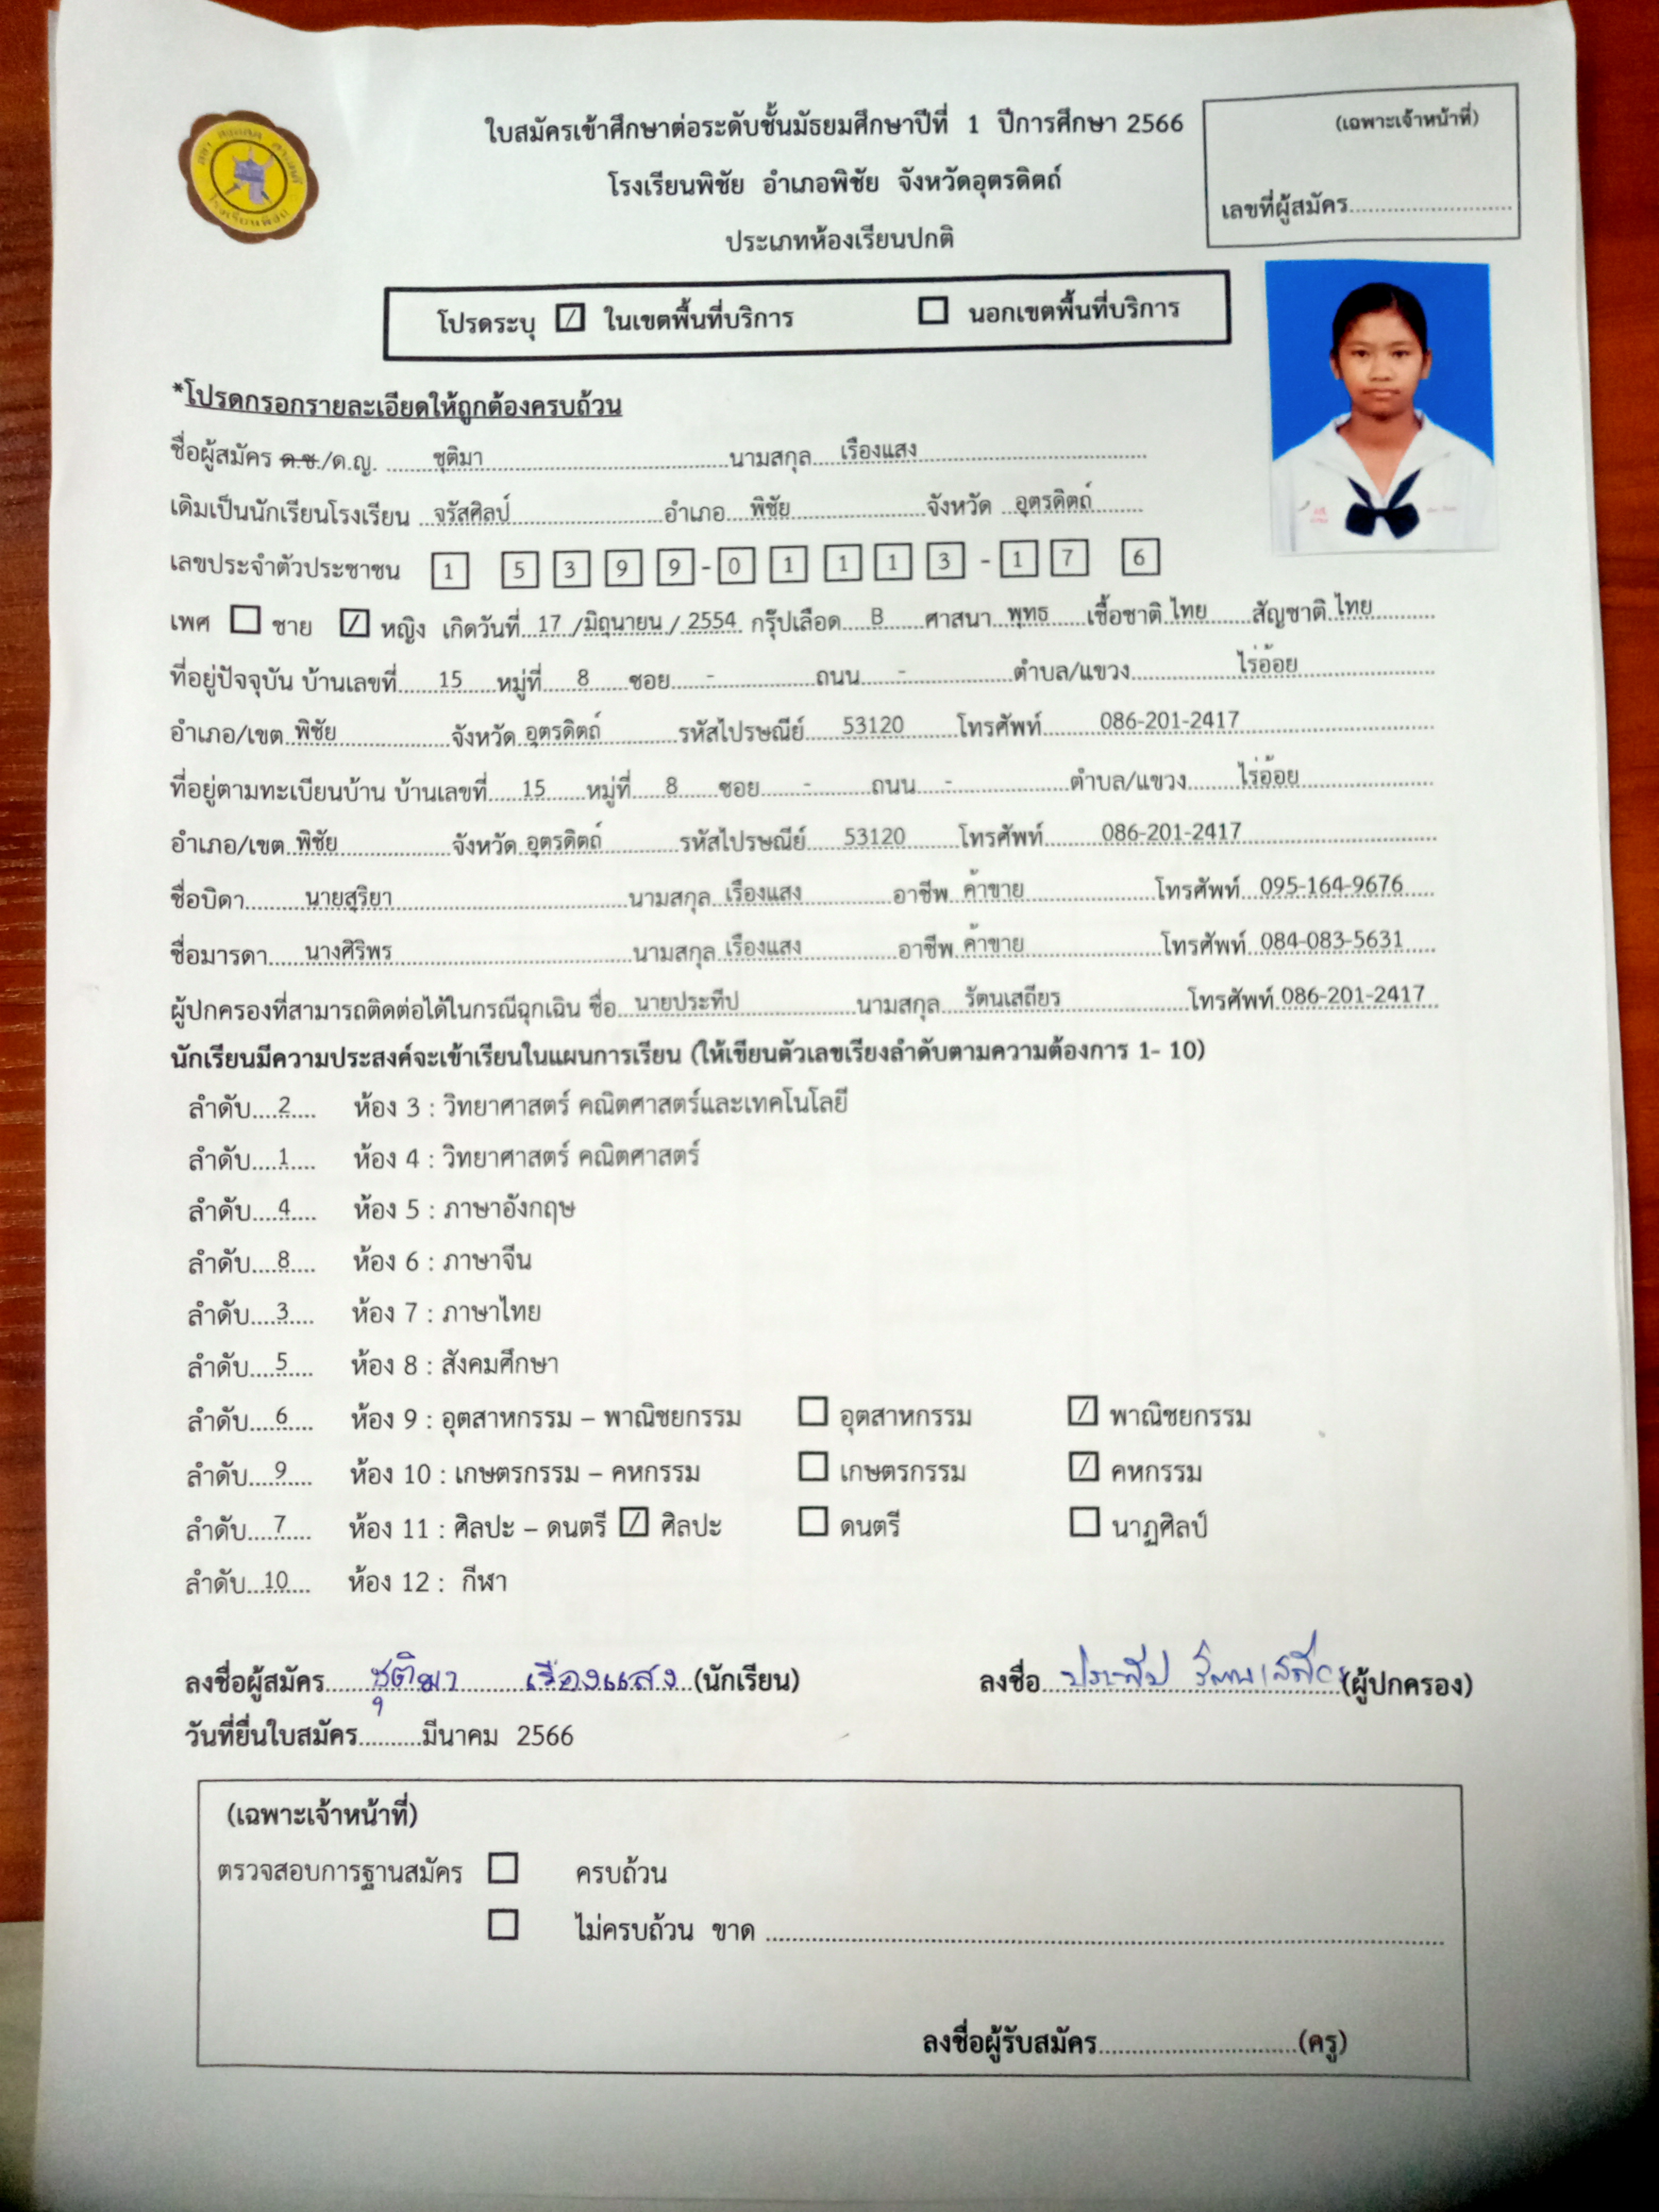 ใบสมัครเข้าศึกษาต่อระดับชั้นมัธยมศึกษาปีที่ 1 ปีการศึกษา 2566
(เฉพาะเจ้าหน้าที่)
โรงเรียนพิชัย อำเภอพิชัย จังหวัดอุตรดิตถ์
เลขที่ผู้สมัคร
ประเภทห้องเรียนปกติ
โปรดระบุ / ในเขตพื้นที่บริการ นอกเขตพื้นที่บริการ
*โปรดกรอกรายละเอียดให้ถูกต้องครบถ้วน
ชื่อผู้สมัคร ด.ช./ด.ญ. ชุติมา นามสกุล เรืองแสง
เดิมเป็นนักเรียนโรงเรียน จรัสศิลป์ อำเภอ พิชัย จังหวัด อุตรดิตถ์
เลขประจำตัวประชาชน 1 5 3 9 9 - 0 1 1 1 3 - 1 7 6
เพศ ชาย / หญิง เกิดวันที่ 17 / มิถุนายน / 2554 กรุ๊ปเลือด B ศาสนา พุทธ เชื้อชาติ ไทย สัญชาติ ไทย
ที่อยู่ปัจจุบัน บ้านเลขที่ 15 หมู่ที่ 8 ซอย - ถนน - ตำบล/แขวง ไร่อ้อย
อำเภอ/เขต พิชัย จังหวัด อุตรดิตถ์ รหัสไปรษณีย์ 53120 โทรศัพท์ 086-201-2417
ที่อยู่ตามทะเบียนบ้าน บ้านเลขที่ 15 หมู่ที่ 8 ซอย - ถนน - ตำบล/แขวง ไร่อ้อย
อำเภอ/เขต พิชัย จังหวัด อุตรดิตถ์ รหัสไปรษณีย์ 53120 โทรศัพท์ 086-201-2417
ชื่อบิดา นายสุริยา นามสกุล เรืองแสง อาชีพ ค้าขาย โทรศัพท์ 095-164-9676
ชื่อมารดา นางศิริพร นามสกุล เรืองแสง อาชีพ ค้าขาย โทรศัพท์ 084-083-5631
ผู้ปกครองที่สามารถติดต่อได้ในกรณีฉุกเฉิน ชื่อ นายประทีป นามสกุล รัตนเสถียร โทรศัพท์ 086-201-2417
นักเรียนมีความประสงค์จะเข้าเรียนในแผนการเรียน (ให้เขียนตัวเลขเรียงลำดับตามความต้องการ 1- 10)
ลำดับ 2 ห้อง 3 : วิทยาศาสตร์ คณิตศาสตร์และเทคโนโลยี
ลำดับ 1 ห้อง 4 : วิทยาศาสตร์ คณิตศาสตร์
ลำดับ 4 ห้อง 5 : ภาษาอังกฤษ
ลำดับ 8 ห้อง 6 : ภาษาจีน
ลำดับ 3 ห้อง 7 : ภาษาไทย
ลำดับ 5 ห้อง 8 : สังคมศึกษา
ลำดับ 6 ห้อง 9 : อุตสาหกรรม – พาณิชยกรรม อุตสาหกรรม / พาณิชยกรรม
ลำดับ 9 ห้อง 10 : เกษตรกรรม – คหกรรม เกษตรกรรม / คหกรรม
ลำดับ 7 ห้อง 11 : ศิลปะ – ดนตรี / ศิลปะ ดนตรี นาฏศิลป์
ลำดับ 10 ห้อง 12 : กีฬา
ลงชื่อผู้สมัคร ชุติมา เรืองแสง (นักเรียน) ลงชื่อ ประทีป รัตนเสถียร (ผู้ปกครอง)
วันที่ยื่นใบสมัคร มีนาคม 2566
(เฉพาะเจ้าหน้าที่)
ตรวจสอบการฐานสมัคร ครบถ้วน
ไม่ครบถ้วน ขาด
ลงชื่อผู้รับสมัคร (ครู)